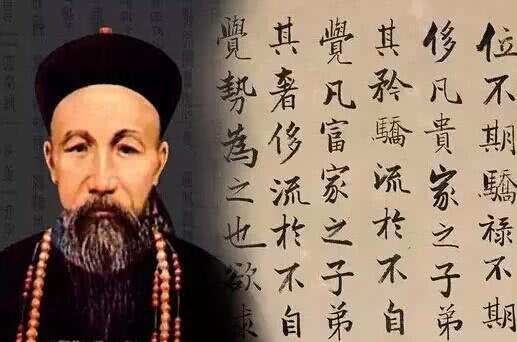 位不期驕祿不期
侈凡貴家之子弟
其矜驕流於不自
覺凡富家之子弟
其奢侈流於不自
覺勢為之也欲